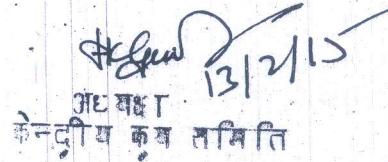 13/2/15
अध्यक्ष
केन्द्रीय क्रय समिति